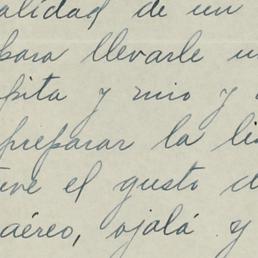 alidad de un
para llevarle u
pita y mio y
preparar la li
uve el gusto d
aéreo, ojalá y